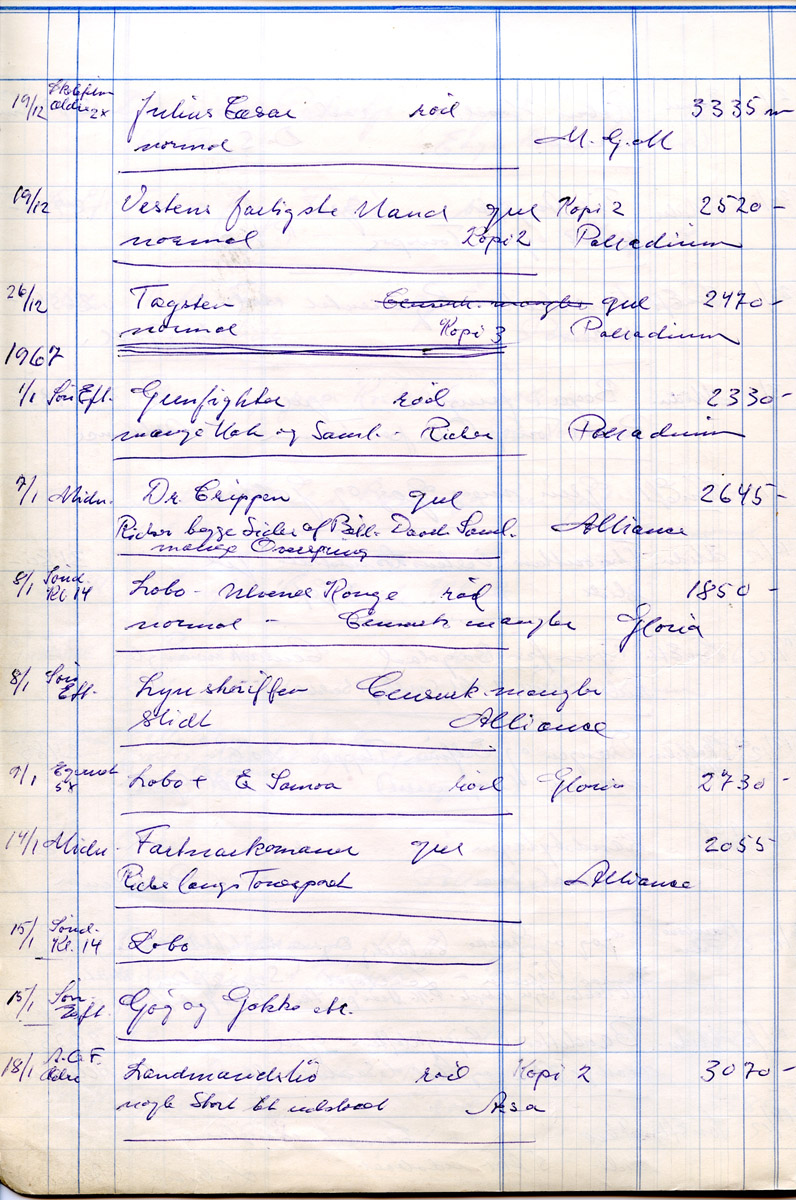 19/12 2x Julius Cæsar röd 3335 m
normal M.G.M
19/12 Vestens farligste Mand gul Kopi 2 2520 -
normal Kopi 2 Palladium
26/12 Tagsten Censurk. mangler gul 2470 -
normal Kopi 3 Palladium
1967
1/1 Søn Eft. Gunfighter röd 2330 -
mange Hak og Saml. - Ridser Palladium
7/1 Midn. Dr. Crippen gul 2645 -
Ridser begge Sider af Bill. Saml. Alliance
8/1 Sønd. Kl. 14 Lobo - Ulvenes Konge röd 1850 -
normal - Censurk mangler Gloria
8/1 Søn Eft. Lynsheriffen Censurk. mangler
Slidt Alliance
9/1 5x Lobo + Samoa röd Gloria 2730 -
14/1 Midn. Fartnarkomaner gul 2055
Ridser langs Tonesporet Alliance
15/1 Sønd. Kl. 14 Lobo
15/1 Søn Eft. Gög og Gokke
18/1 A.O.F. Landmandsliö röd Kopi 2 3070 -
nogle Asa